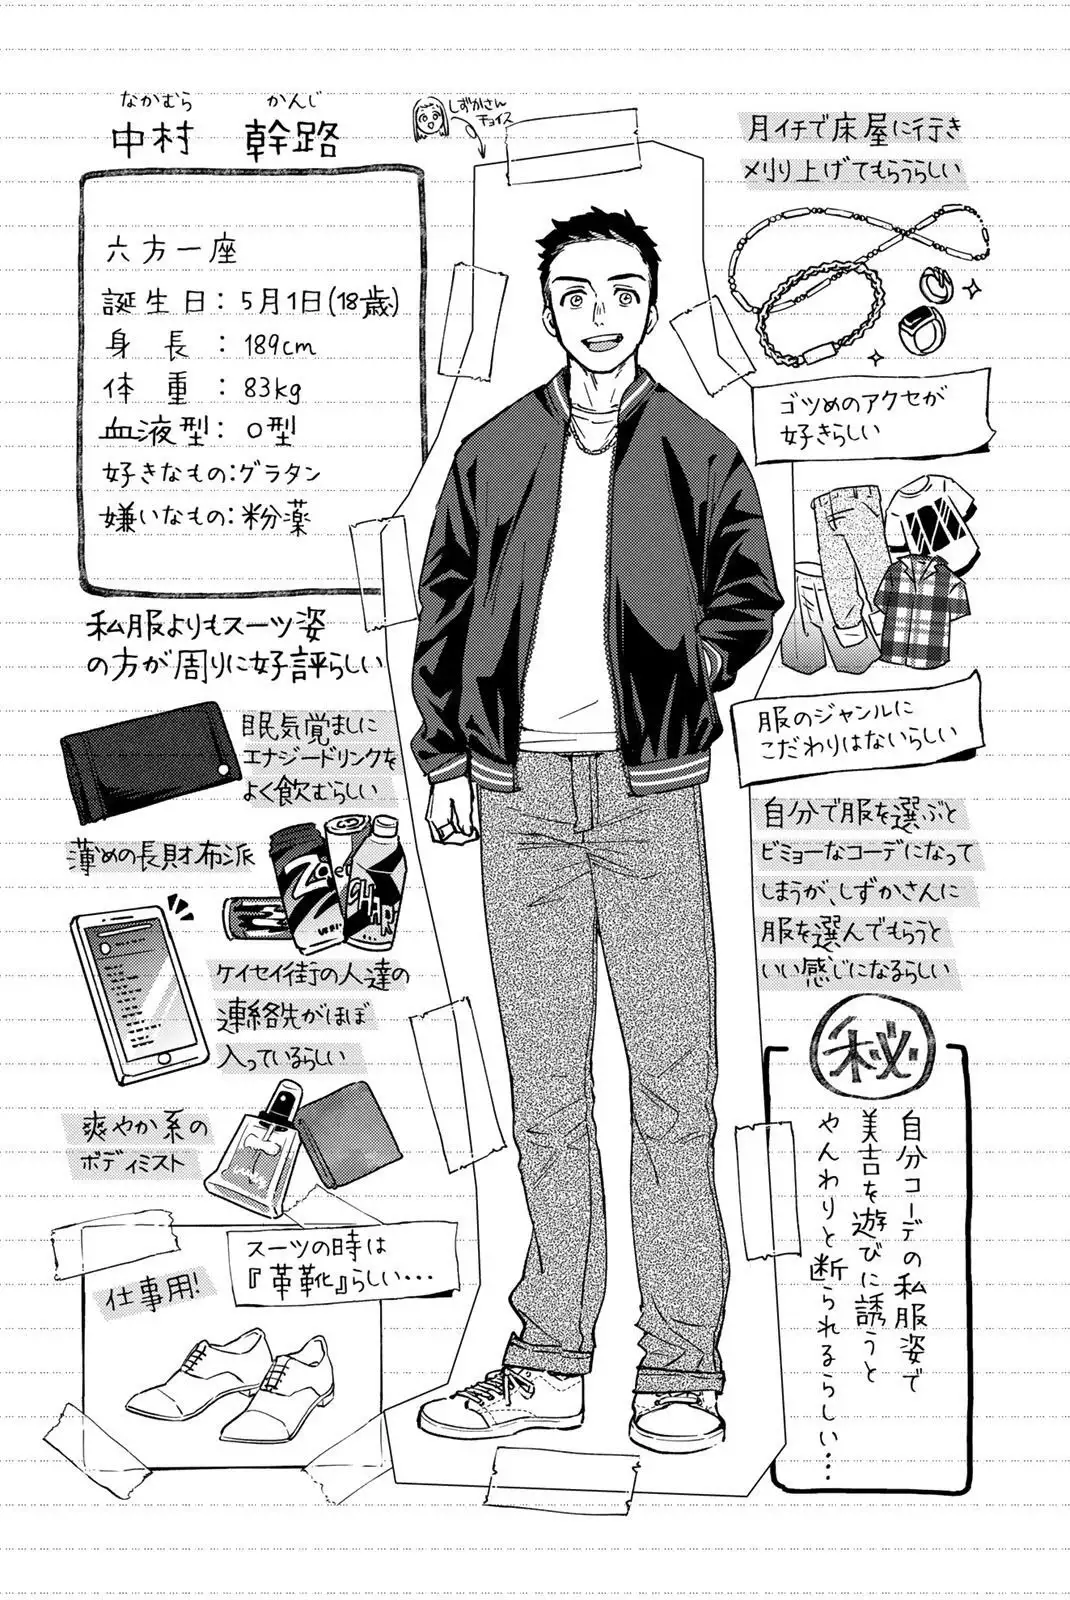 なかむら かんじ
中村 幹路
しずかさん
チョイス
六方一座
誕生日：5月1日(18歳)
身長：189cm
体重：83kg
血液型：O型
好きなもの：グラタン
嫌いなもの：粉薬
私服よりもスーツ姿
の方が周りに好評らしい
眠気覚ましに
エナジードリンクを
よく飲むらしい
薄めの長財布派
ケイセイ街の人達の
連絡先がほぼ
入っているらしい
爽やか系の
ボディミスト
スーツの時は
『革靴』らしい…
仕事用!
月イチで床屋に行き
刈り上げてもらうらしい
ゴツめのアクセが
好きらしい
服のジャンルに
こだわりはないらしい
自分で服を選ぶと
ビミョーなコーデになって
しまうが、しずかさんに
服を選んでもらうと
いい感じになるらしい
秘
自分コーデの私服姿で
美吉を遊びに誘うと
やんわりと断られるらしい…